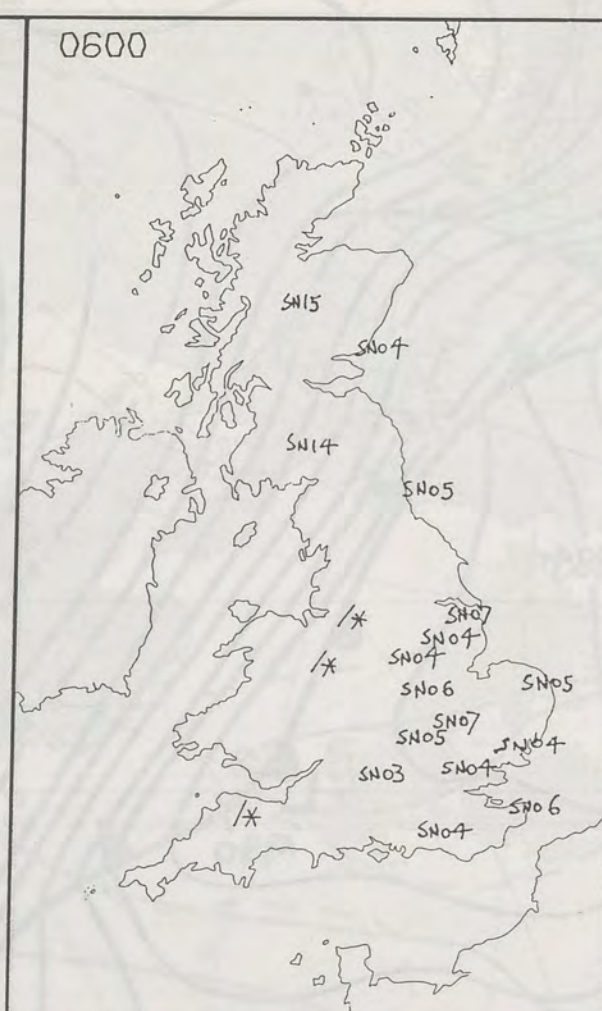 0600
SN15
SN04
SN14
SN05
SN07
/*
SN04
SN04
/*
SN06
SN05
SN07
SN05
SN04
SN03
SN04
SN06
/*
SN04